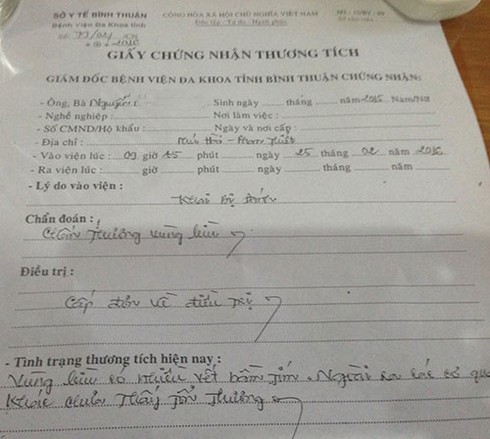 SỞ Y TẾ BÌNH THUẬN
CỘNG HÒA XÃ HỘI CHỦ NGHĨA VIỆT NAM
Bệnh Viện Đa Khoa tỉnh
Độc lập - Tự do - Hạnh phúc
GIẤY CHỨNG NHẬN THƯƠNG TÍCH
GIÁM ĐỐC BỆNH VIỆN ĐA KHOA TỈNH BÌNH THUẬN CHỨNG NHẬN:
- Ông, Bà Nguyễn Sinh ngày tháng năm Nam/Nữ
- Nghề nghiệp : Nơi làm việc :
- Số CMND/Hộ khẩu : Ngày và nơi cấp :
- Địa chỉ :
- Vào viện lúc : 09 giờ 15 phút ngày 25 tháng 02 năm 2016
- Ra viện lúc : giờ phút ngày tháng năm
- Lý do vào viện :
Khai bị đánh
Chẩn đoán :
Chấn thương vùng lưng
Điều trị :
Cấp đơn về điều trị
- Tình trạng thương tích hiện nay :
Vùng lưng có nhiều vết bầm tím. Ngoài ra các cơ qua
khác chưa thấy tổn thương